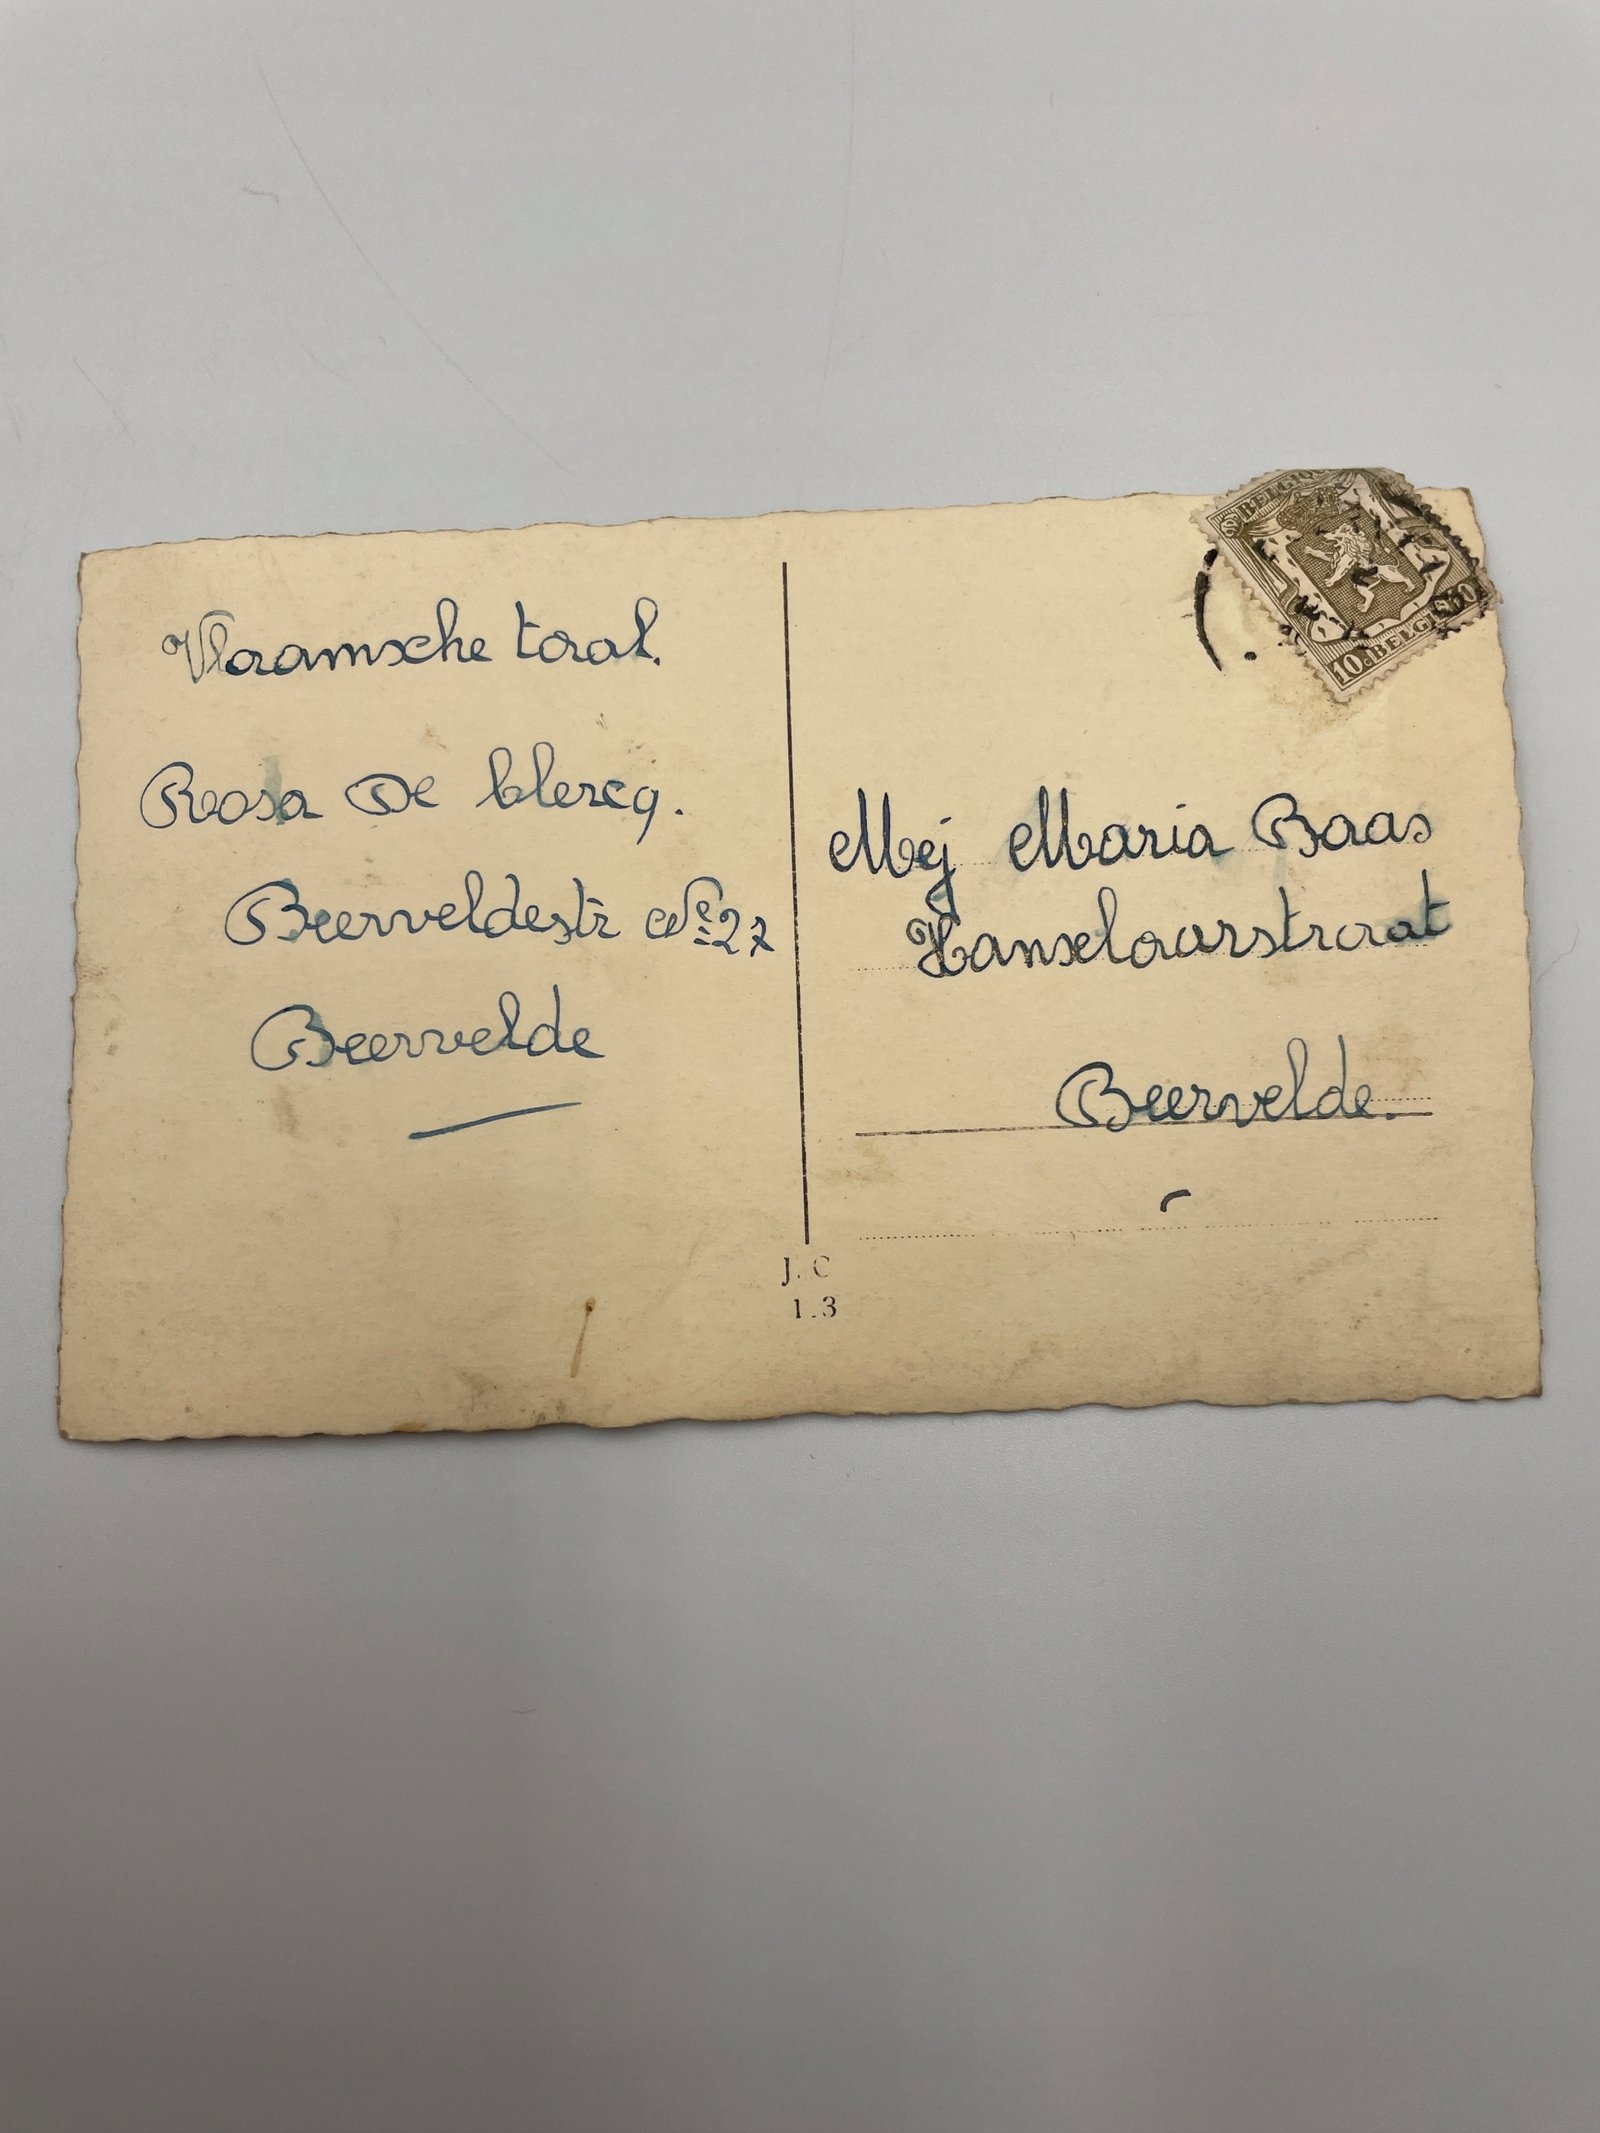 Vlaamsche taal.
Rosa De Clercq.
Beerveldestr No 27
Beervelde
BELGIQUE
10c BELGIE 10
Mej Maria Baas
Hanselaarstraat
Beervelde.
J. C
1.3